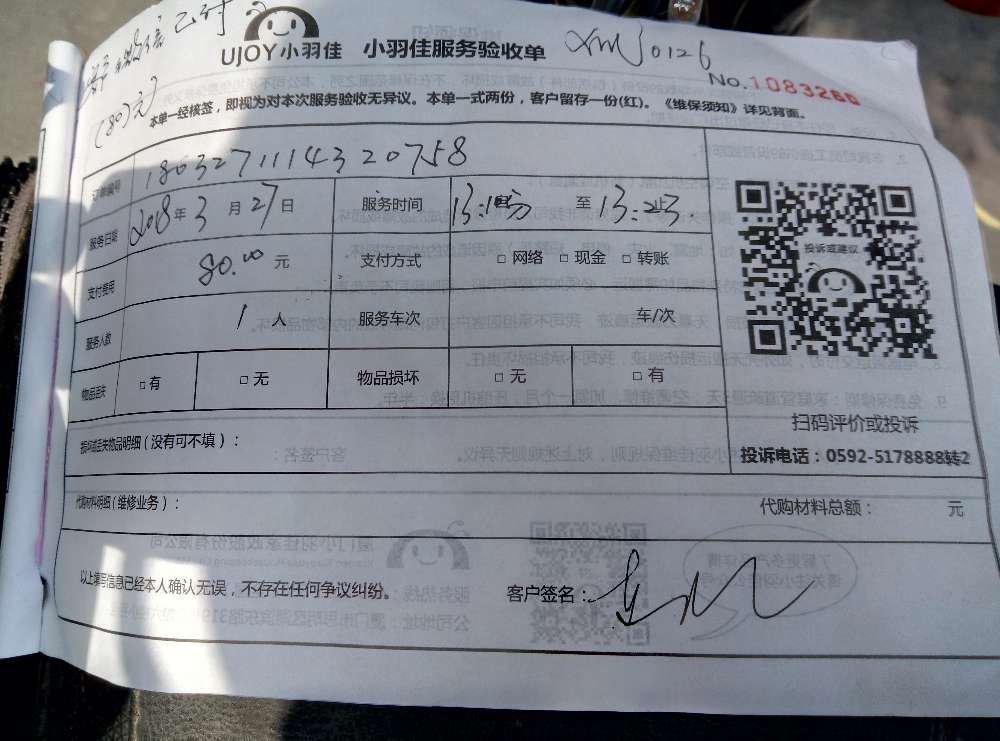 已付
(80)元
UJOY小羽佳 小羽佳服务验收单
XMJ0126
No.1083266
本单一经核签，即视为对本次服务验收无异议。本单一式两份，客户留存一份(红)。《维保须知》详见背面。
订单编号 1803271114320758
服务日期 2018年3月27日 服务时间 13: 至 13:
支付费用 80.00元 支付方式 □网络 □现金 □转账
服务人数 1人 服务车次 车/次
物品丢失 □有 □无 物品损坏 □无 □有
投诉或建议
扫码评价或投诉
投诉电话：0592-5178888转2
损坏或丢失物品明细（没有可不填）：
代购材料明细（维修业务）： 代购材料总额： 元
以上填写信息已经本人确认无误，不存在任何争议纠纷。 客户签名：